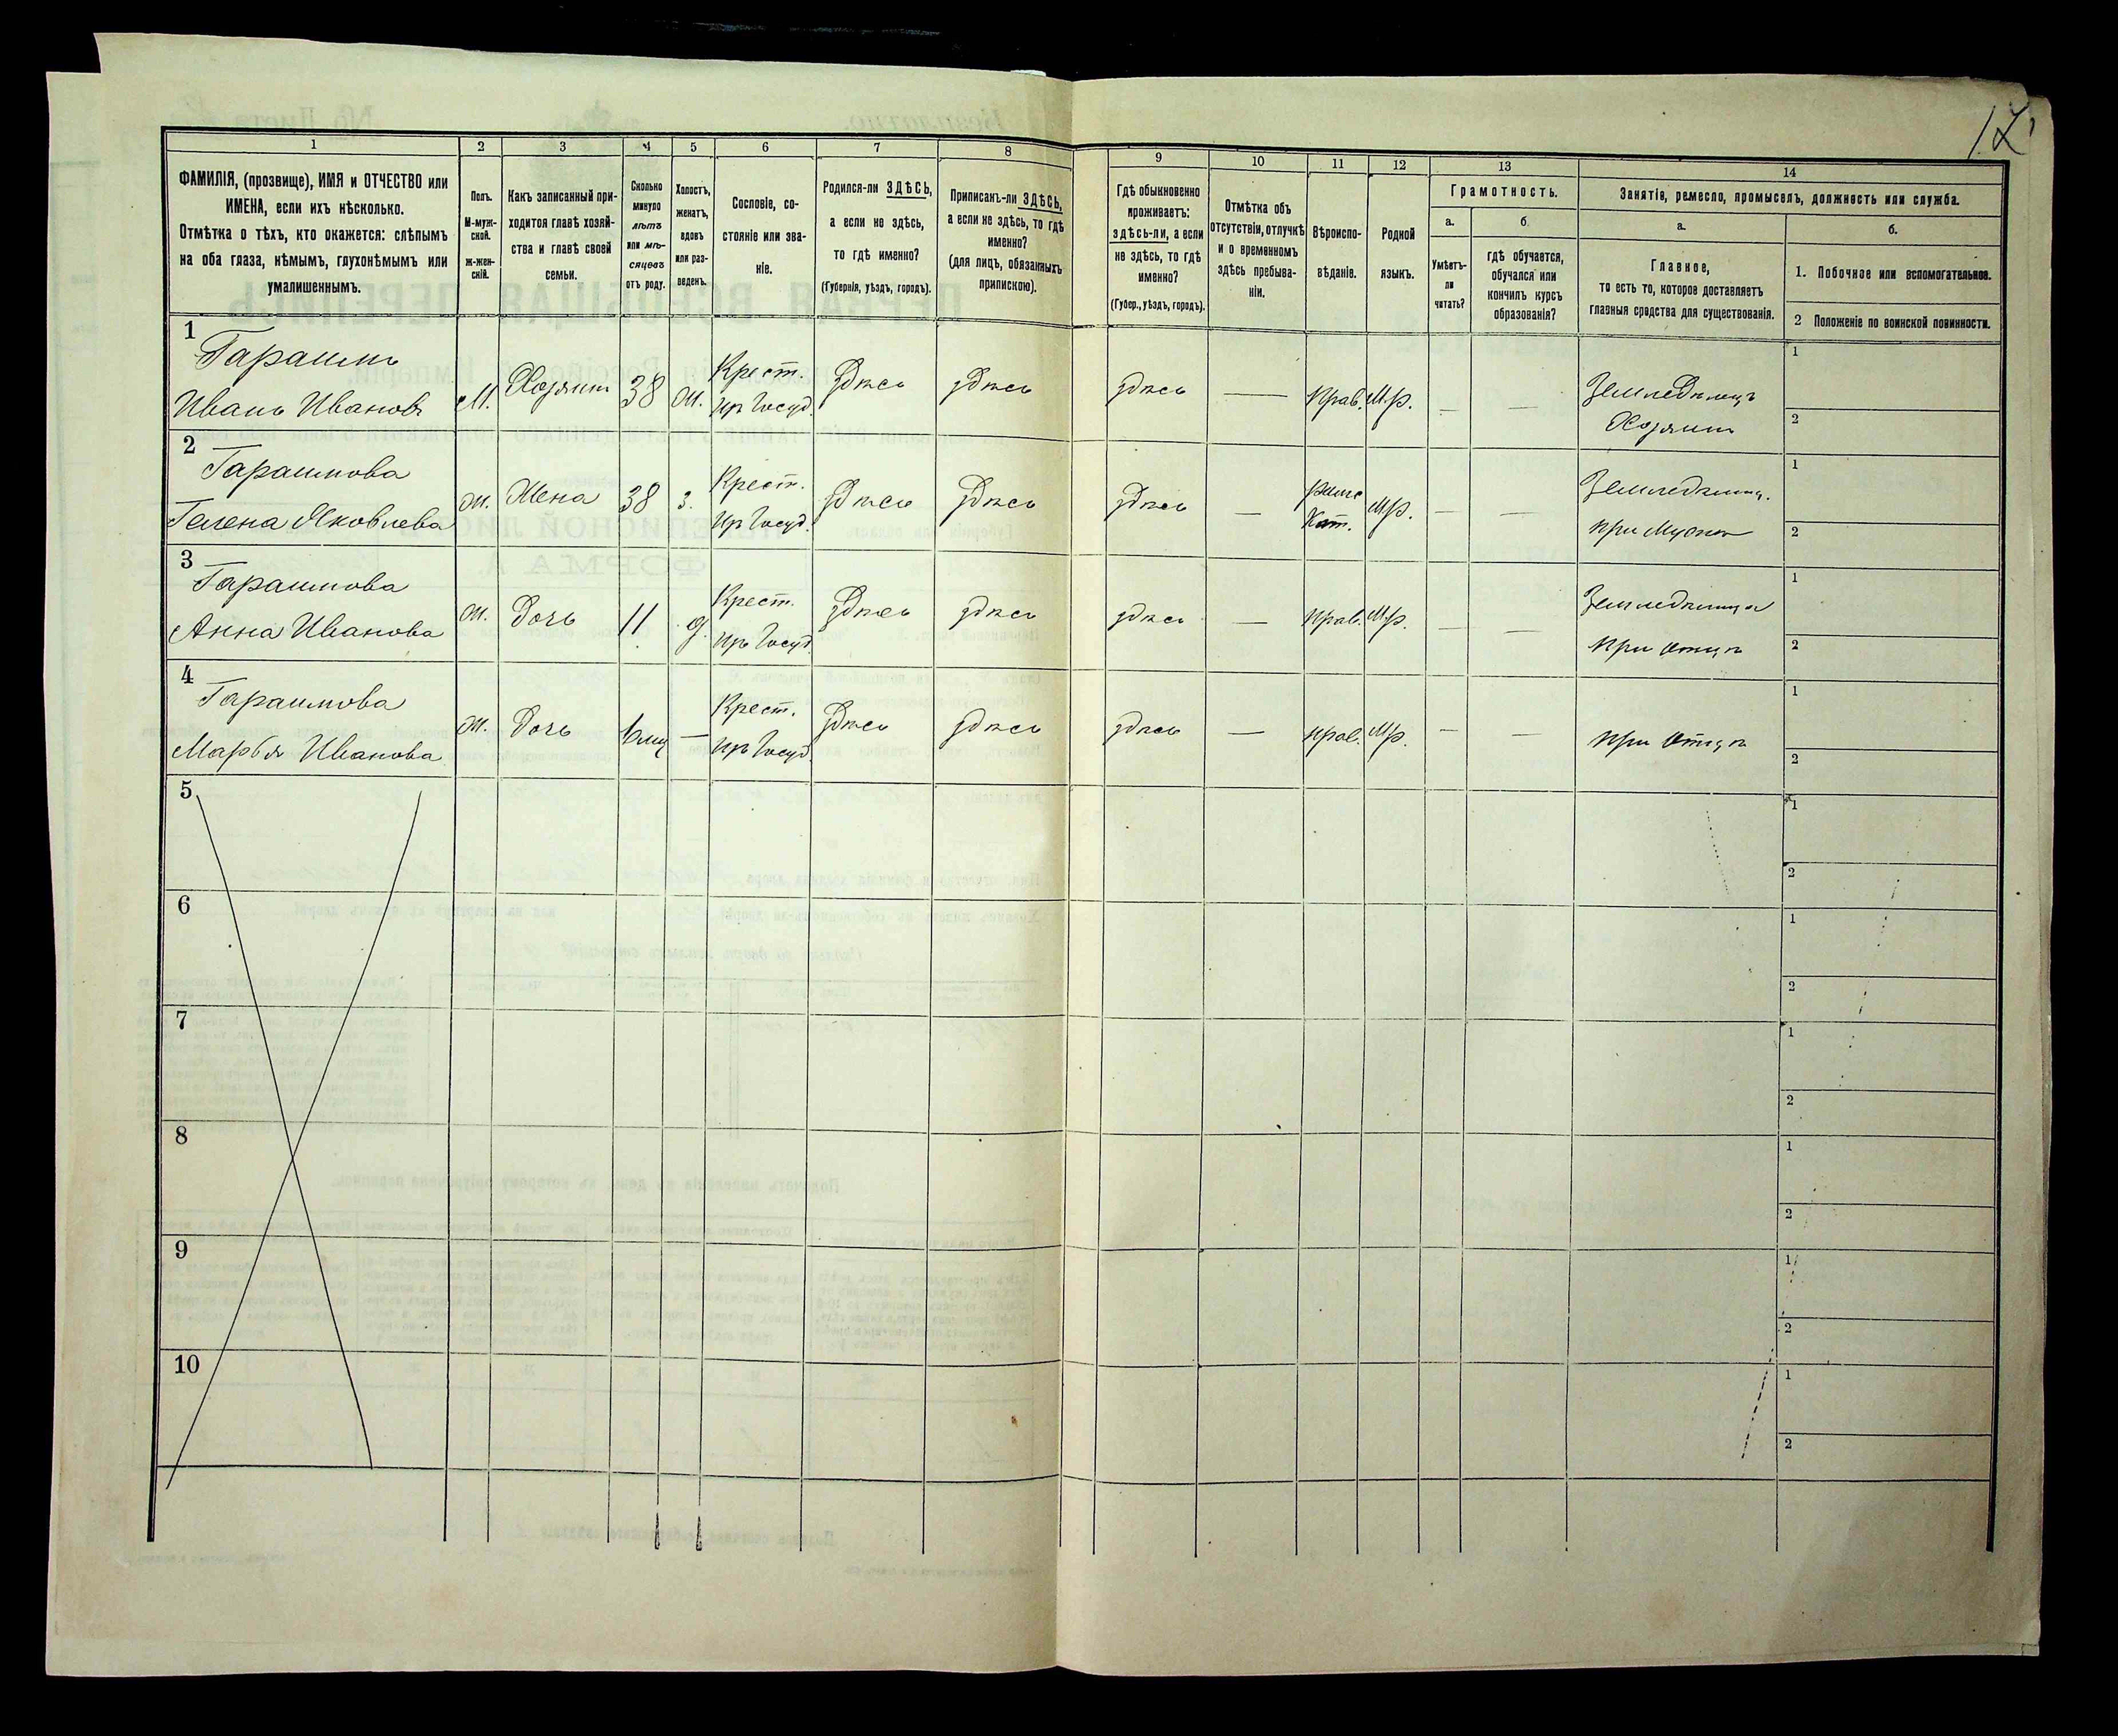 17
1 2 3 4 5 6 7 8 9 10 11 12 13 14
ФАМИЛІЯ, (прозвище), ИМЯ и ОТЧЕСТВО или
ИМЕНА, если ихъ нѣсколько.
Отмѣтка о тѣхъ, кто окажется: слѣпымъ
на оба глаза, нѣмымъ, глухонѣмымъ или
умалишеннымъ.
Полъ.
М-муж-
ской.
ж-жен-
скій.
Какъ записанный при-
ходится главѣ хозяй-
ства и главѣ своей
семьи.
Сколько
минуло
лѣтъ
или мѣ-
сяцевъ
отъ роду.
Холостъ,
женатъ,
вдовъ
или раз-
веденъ.
Сословіе, со-
стояніе или зва-
ніе.
Родился-ли ЗДѢСЬ,
а если не здѣсь,
то гдѣ именно?
(Губернія, уѣздъ, городъ).
Приписанъ-ли ЗДѢСЬ,
а если не здѣсь, то гдѣ
именно?
(для лицъ, обязанныхъ
припискою).
Гдѣ обыкновенно
проживаетъ:
здѣсь-ли, а если
не здѣсь, то гдѣ
именно?
(Губер., уѣздъ, городъ).
Отмѣтка объ
отсутствіи, отлучкѣ
и о временномъ
здѣсь пребыва-
ніи.
Вѣроиспо-
вѣданіе.
Родной
языкъ.
Грамотность.
а.
Умѣетъ-
ли
читать?
б.
гдѣ обучается,
обучался или
кончилъ курсъ
образованія?
Занятіе, ремесло, промыселъ, должность или служба.
а.
Главное,
то есть то, которое доставляетъ
главныя средства для существованія.
б.
1. Побочное или вспомогательное.
2 Положеніе по воинской повинности.
1
Гарашимъ
Иванъ Ивановъ
М.
Хозяинъ
38
Ж.
Крест.
из Госуд.
здѣсь
здѣсь
здѣсь
—
Прав.
М.р.
—
—
Земледѣлецъ
Хозяинъ
1
2
2
Гарашимова
Гелена Яковлева
Ж.
Жена
38
З.
Крест.
из Госуд.
здѣсь
здѣсь
здѣсь
—
Римс
Кат.
М.р.
—
—
при Мужѣ
1
2
3
Гарашимова
Анна Иванова
Ж.
Дочь
11
Д.
Крест.
из Госуд.
здѣсь
здѣсь
здѣсь
—
Прав.
М.р.
—
—
при отцѣ
1
2
4
Гарашимова
Марья Иванова
Ж.
Дочь
—
Крест.
из Госуд.
здѣсь
здѣсь
здѣсь
—
Прав.
М.р.
—
—
при отцѣ
1
2
5
1
2
6
1
2
7
1
2
8
1
2
9
1
2
10
1
2